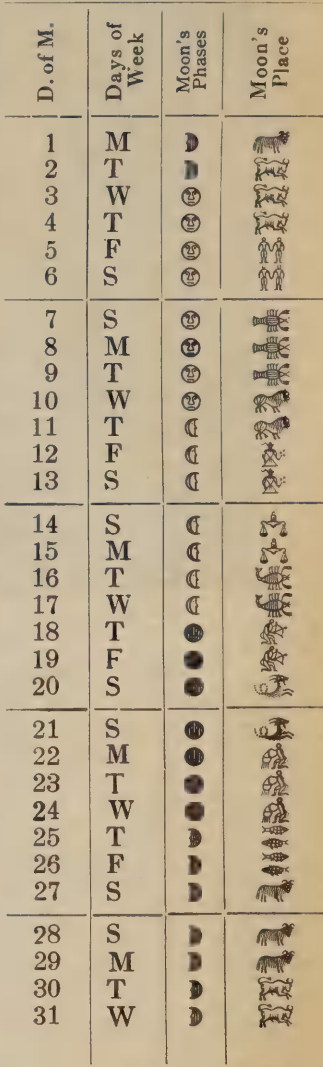 D. of M. Days of Week Moon's Phases Moon's Place
1 M
2 T
3 W
4 T
5 F
6 S
7 S
8 M
9 T
10 W
11 T
12 F
13 S
14 S
15 M
16 T
17 W
18 T
19 F
20 S
21 S
22 M
23 T
24 W
25 T
26 F
27 S
28 S
29 M
30 T
31 W